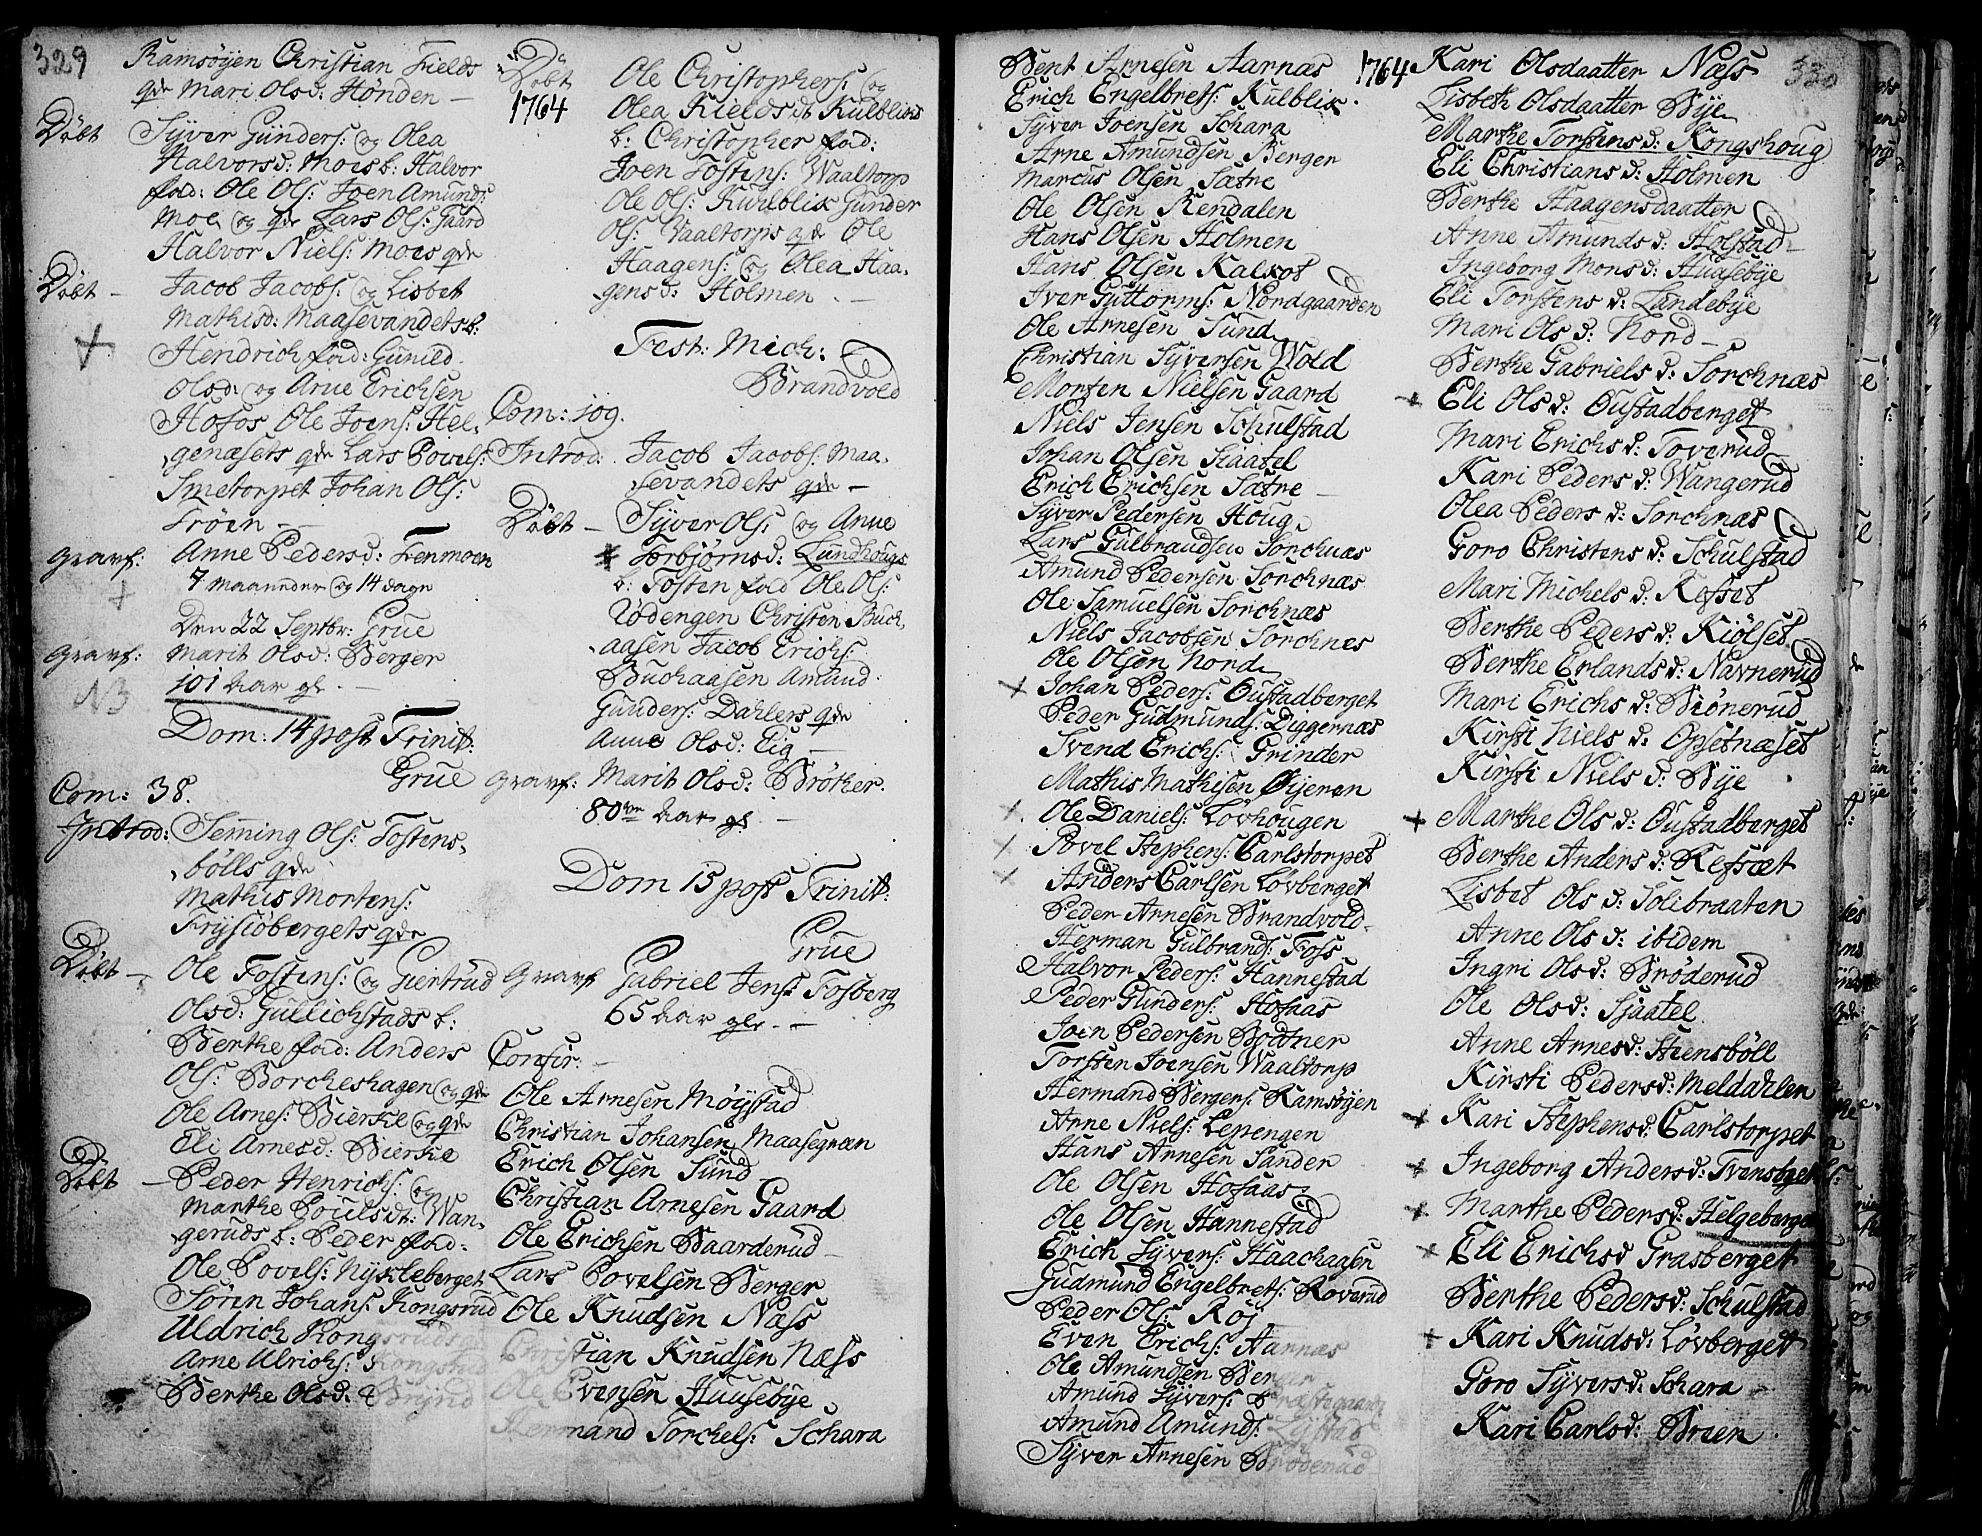 329
Ramsøyen Christian Fields
qde Mari Olsd: Honden –
Döbt
Syver Günders: og Olea
Halvorsd: Moes b: Halvor
fad: Ole Ols: Joen Amunds:
Moe og qde Lars Ols: Gaard
Halvor Niels: Moes qde
Döbt –
Jacob Jacobs: og Lisbet
Mathisd: Maasevandets b:
Hendrich fad: Gunild
Olsd: og Arne Erichsen
Hofos Ole Joens: Hel-
genæsets qde Lars Povels:
Smetorpet Johan Ols:
Trøen –
Gravf:
Anne Pedersd: Tenmoen
7 maaneder og 14 dage
Den 22 Septbr: Grue
Gravf:
Marit Olsd: Berger
NB
101 aar gl. –
Dom: 14 post Trinit:
Grue
Com: 38.
Introd: Seming Ols: Tostens-
bölls qde
Mathis Mortens:
Frysiöbergets qde
Döbt –
Ole Tostens: og Giertrud
Olsd: Gullichstads b:
Berthe fad: Anders
Ols: Borcheshagen og qde
Ole Arnes: Bierke og qde
Eli Arnesd: Bierke
Döbt –
Peder Henrichs: og
Marthe Poulsdt: Wan-
geruds b: Peder fad:
Ole Povels: Nyckleberget
Sören Johans: Kongsrud
Uldrich Kongsruds
Arne Ulrichs: Kongsrud
Berthe Olsd:
Döbt
1764
Ole Christophers: og
Olea Fieldsdt Kulblids
b: Christopher fad:
Joen Tostens: Waaltorp
Ole Ols: Kulblik Gunder
Ols: Vaaltorps qde Ole
Haagens: og Olea Haa-
gensd: Holmen –
Fest: Mich:
Brandvold
Com: 109.
Introd: Jacob Jacobs: Maa-
sevandets qde –
Döbt –
Syver Ols: og Anne
Torbjørnsd: Lundhougs
b: Tosten fad Ole Ols:
Rödengen Christen Buch-
aasen Jacob Erichs:
Buchaasen Amund
Gunders: Dahlers qde
Anne Olsd: Eig –
Gravf: Marit Olsd: Bröther.
80 aar gl –
Dom 15 post Trinit:
Grue
Gravf
Gabriel Jens: Fosberg
65 aar gle. –
Confir: –
Ole Arnesen Möystad
Christian Johansen Maasegræn
Erich Olsen Sund
Christian Arnesen Gaard
Ole Erichsen Baarderud
Lars Povelsen Berger
Ole Knudsen Næss
Christian Knudsen Næss
Ole Evensen Huusebye
Hermand Torchels: Schara
Bent Arnesen Aarnæs
Erich Engelbrets: Kulblik
Syver Joensen Schara
Arne Amundsen Bergen
Marcus Olsen Sætre
Ole Olsen Rendalen
Hans Olsen Holmen
Hans Olsen Kalkot
Iver Guttorms: Nordgaarden
Ole Arnesen Sund
Christian Syversen Wold
Morten Nielsen Gaard
Niels Jensen Schulstad
Johan Olsen Siaatel
Erich Erichsen Sætre
Syver Pedersen Houg
Lars Gulbrandsen Sorchnæs
Amund Pedersen Sorchnæs
Ole Samuelsen Sorchnæs
Niels Jacobsen Sorchnes
Ole Olsen Nord
Johan Peders: Oustadberget
Peder Gudmunds: Diggernæs
Svend Erichs: Grinder
Mathis Mathisen Öijeren
Ole Daniels: Lövhougen
Povel Stephens: Carlstorpet
Anders Carlsen Lövberget
Peder Arnesen Brandvold
Herman Gulbrands: Foss
Halvor Peders: Hannestad
Peder Gunders: Hofaas
Joen Pedersen Bodtner
Torsten Joensen Waaltorp
Hermand Bergers: Ramsöyen
Arne Niels: Lepengen
Hans Arnesen Sander
Ole Olsen Hofaas
Ole Olsen Hannestad
Erich Syvers: Haachagen
Gudmund Engelbrets: Roverud
Peder Ols: Röj
Even Erichs: Aarnæs
Ole Amundsen Berger
Amund Syvers: Præstegaard
Amund Amunds: Lystad
Syver Arnesen Bröderud
1764
Kari Olsdaatter Næss
330
Lisbeth Olsdaatter Bye
Marthe Torstensd: Kongshoug
Eli Christiansd: Holmen
Berthe Haagensdaatter
Anne Amundsd: Holstad
Ingeborg Monsd: Huusebye
Eli Torstensd: Landebye
Mari Olsd: Nord
Berthe Gabrielsd: Sorchnæs
Eli Olsd: Oustadberget
Mari Erichsd: Toverud
Kari Pedersd: Wangerud
Olea Pedersd: Sorchnæs
Goro Christensd: Schulstad
Mari Michelsd: Refset
Berthe Pedersd: Kiölset
Berthe Erlandsd: Navnerud
Mari Erichsd: Biönerud
Kirsti Nielsd: Opsetnæset
Kirsti Nielsd: Bye
Marthe Olsd: Oustadberget
Berthe Andersd: Refsæt
Lisbet Olsd: Solibraaten
Anne Olsd: ibidem
Ingri Olsd: Bröderud
Ole Olsd: Sjaatel
Anne Arnesd: Steensböll
Kirsti Pedersd: Meldahlen
Kari Stephensd: Carlstorpet
Ingeborg Andersd: Tvensberget
Marthe Pedersd: Helgeberget
Eli Erichsd Grasberget
Berthe Pedersd: Schulstad
Kari Knudsd: Lövberget
Goro Syversd: Schara
Kari Carlsd: Breen